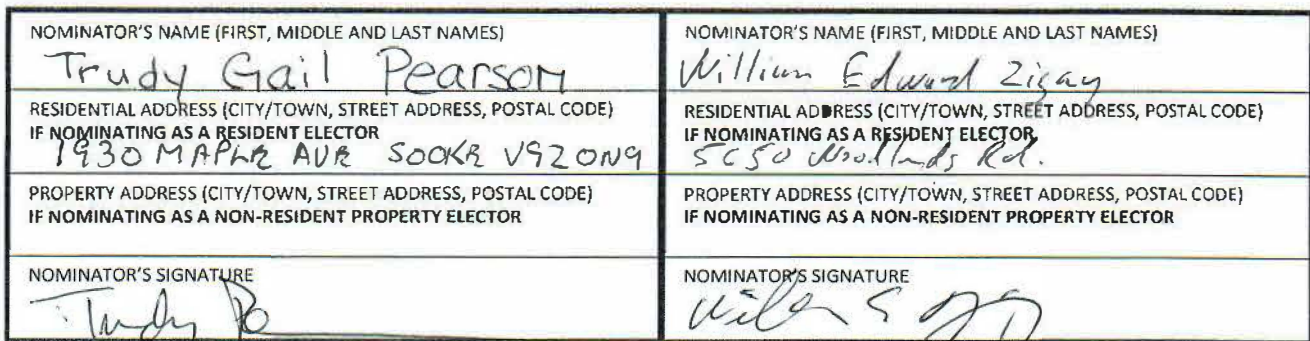 NOMINATOR'S NAME (FIRST, MIDDLE AND LAST NAMES)
Trudy Gail Pearson
RESIDENTIAL ADDRESS (CITY/TOWN, STREET ADDRESS, POSTAL CODE)
IF NOMINATING AS A RESIDENT ELECTOR
1930 MAPLE AVE SOOKE V9Z0N9
PROPERTY ADDRESS (CITY/TOWN, STREET ADDRESS, POSTAL CODE)
IF NOMINATING AS A NON-RESIDENT PROPERTY ELECTOR
NOMINATOR'S SIGNATURE
Trudy
NOMINATOR'S NAME (FIRST, MIDDLE AND LAST NAMES)
William Edward Zigay
RESIDENTIAL ADDRESS (CITY/TOWN, STREET ADDRESS, POSTAL CODE)
IF NOMINATING AS A RESIDENT ELECTOR
Woodlands Rd.
PROPERTY ADDRESS (CITY/TOWN, STREET ADDRESS, POSTAL CODE)
IF NOMINATING AS A NON-RESIDENT PROPERTY ELECTOR
NOMINATOR'S SIGNATURE